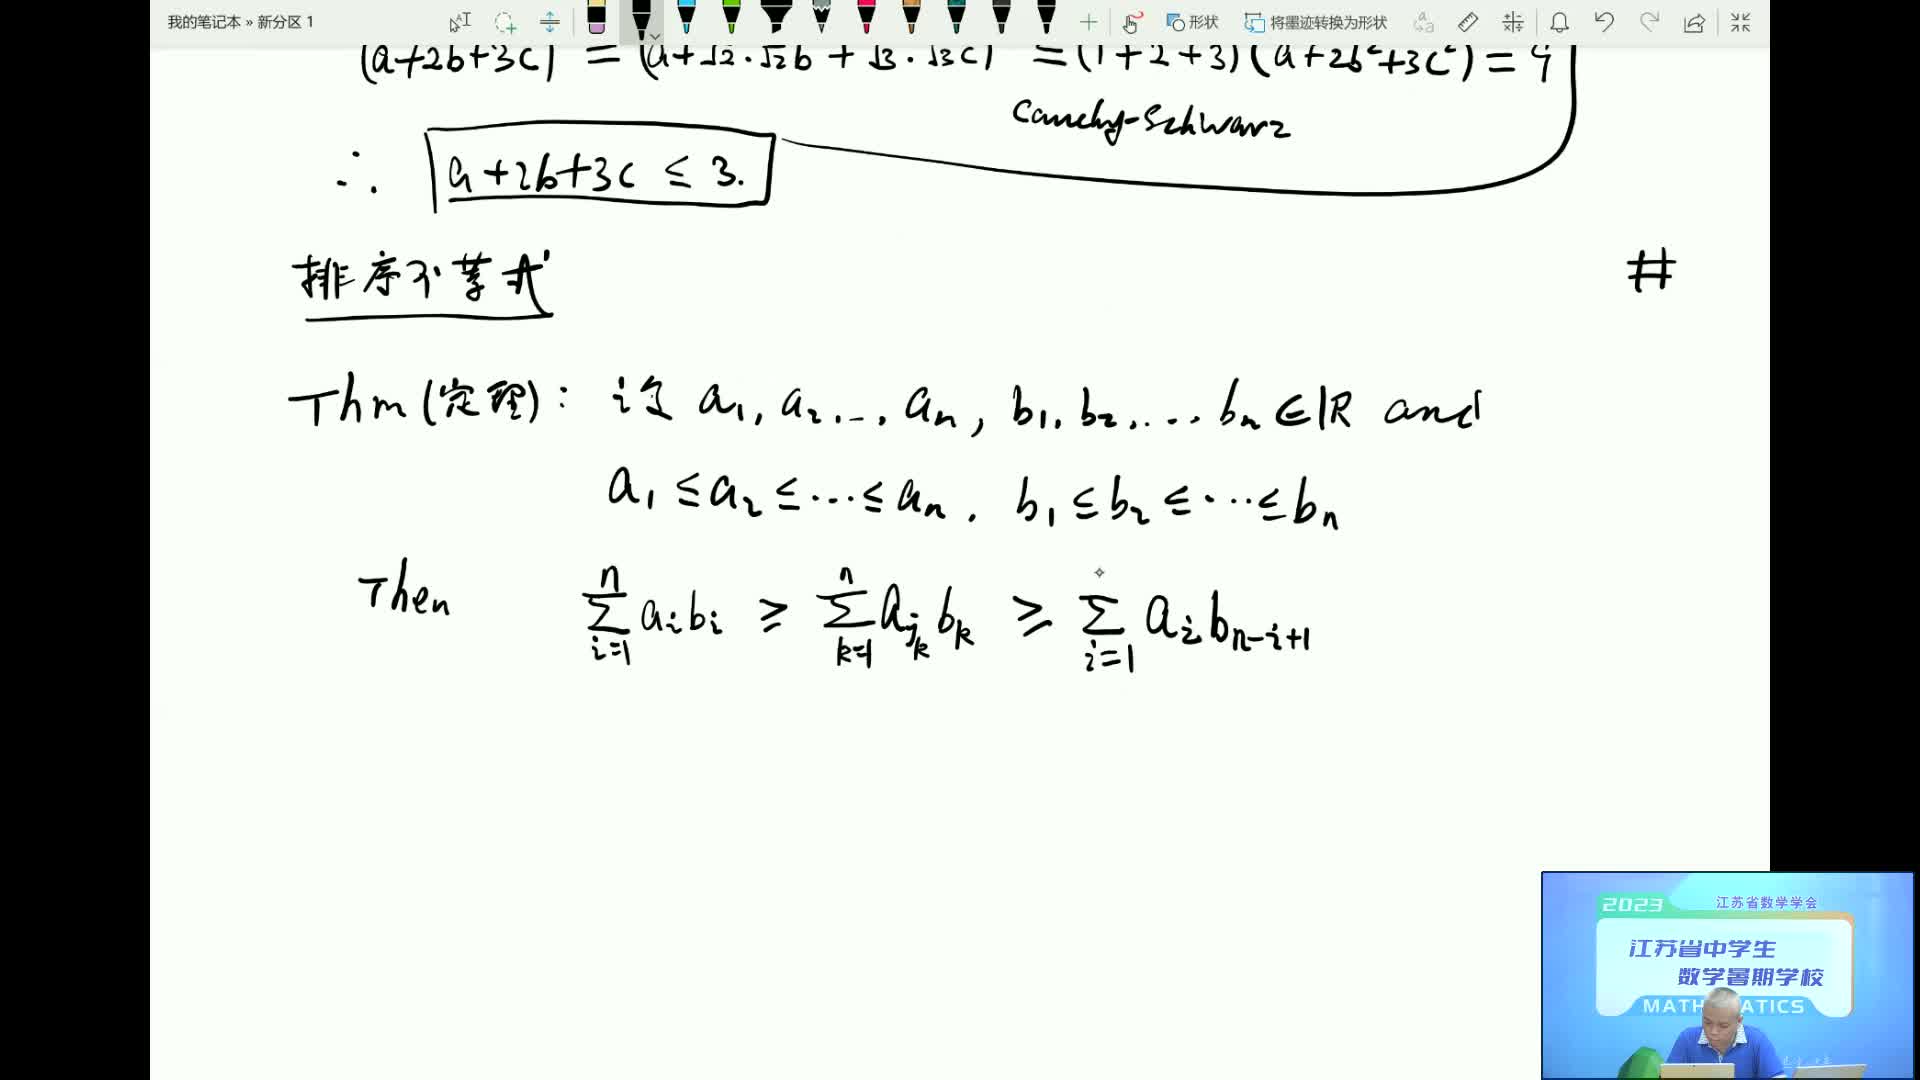 我的笔记本 » 新分区 1
形状
将墨迹转换为形状
(a+2b+3c) = (a+√2·√2b+√3·√3c) = (1+2+3)(a+2b²+3c²) = 9
Cauchy-Schwarz
∴ a+2b+3c ≤ 3.
排序不等式
#
Thm (定理): 设 a₁, a₂, …, aₙ, b₁, b₂, … bₙ ∈ ℝ and
a₁ ≤ a₂ ≤ ⋯ ≤ aₙ. b₁ ≤ b₂ ≤ ⋯ ≤ bₙ
Then ∑_{i=1}^{n} a_i b_i ≥ ∑_{k=1}^{n} a_{j_k} b_k ≥ ∑_{i=1} a_i b_{n-i+1}
2023
江苏省数学学会
江苏省中学生
数学暑期学校